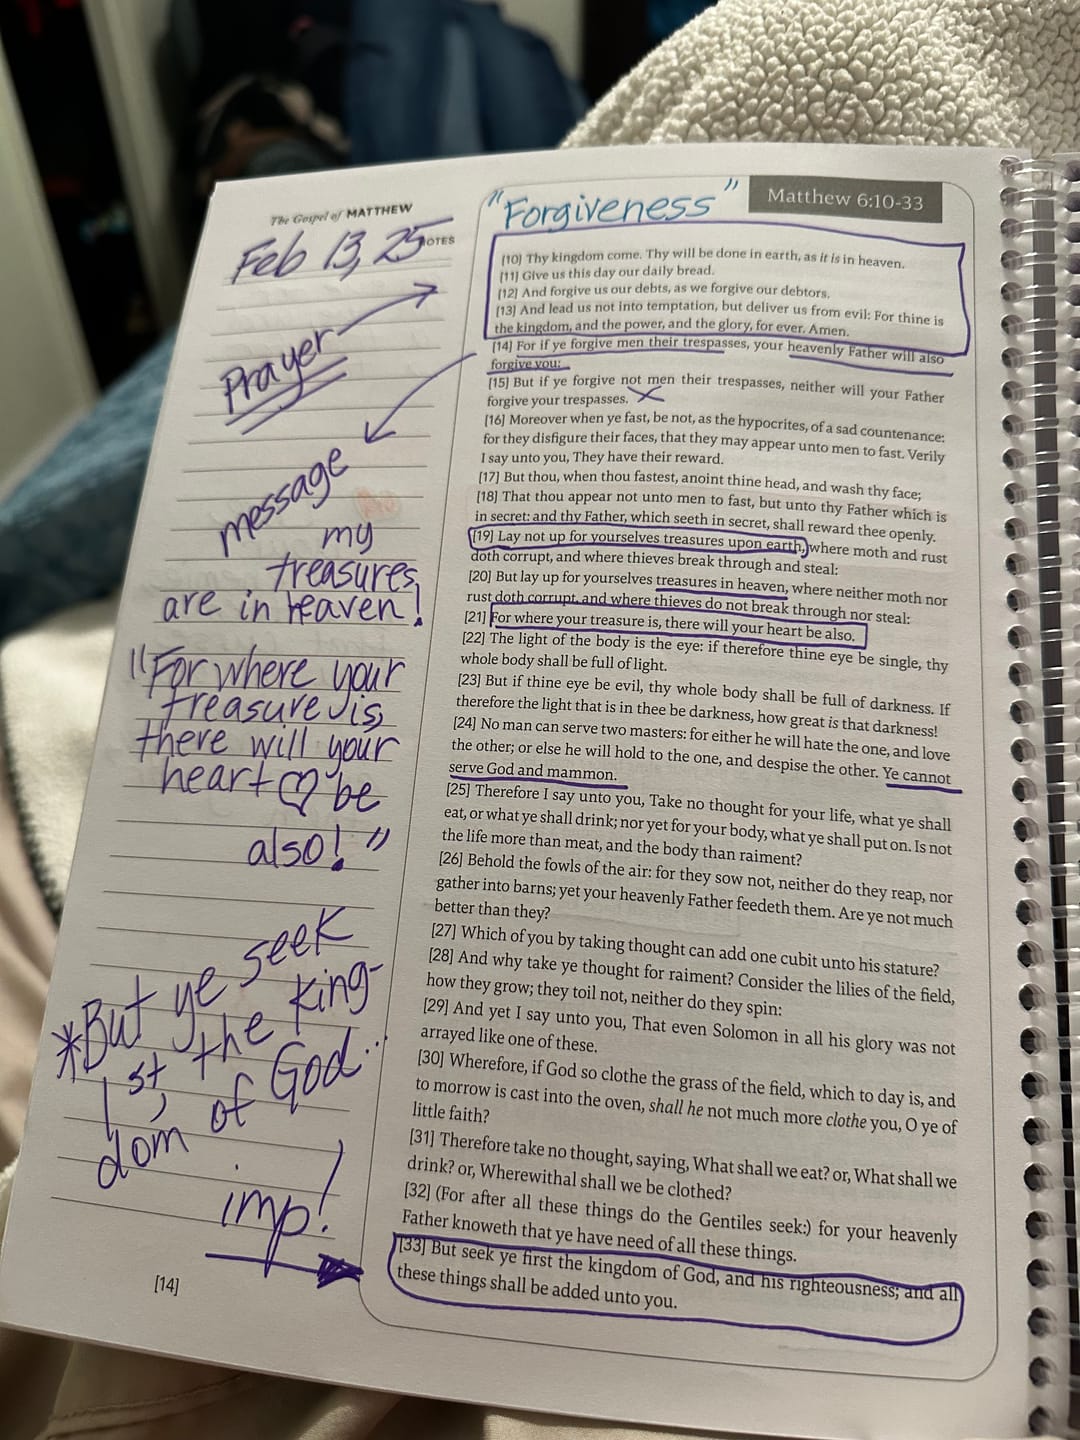 The Gospel of MATTHEW
NOTES
Feb 13, 25
Prayer
message
my
treasures
are in heaven!
"For where your
treasure is,
there will your
heart ♡ be
also!"
*But ye seek
1st, the King-
dom of God...
imp!
[14]
"Forgiveness"
Matthew 6:10-33
[10] Thy kingdom come. Thy will be done in earth, as it is in heaven.
[11] Give us this day our daily bread.
[12] And forgive us our debts, as we forgive our debtors.
[13] And lead us not into temptation, but deliver us from evil: For thine is
the kingdom, and the power, and the glory, for ever. Amen.
[14] For if ye forgive men their trespasses, your heavenly Father will also
forgive you:
[15] But if ye forgive not men their trespasses, neither will your Father
forgive your trespasses.
[16] Moreover when ye fast, be not, as the hypocrites, of a sad countenance:
for they disfigure their faces, that they may appear unto men to fast. Verily
I say unto you, They have their reward.
[17] But thou, when thou fastest, anoint thine head, and wash thy face;
[18] That thou appear not unto men to fast, but unto thy Father which is
in secret: and thy Father, which seeth in secret, shall reward thee openly.
[19] Lay not up for yourselves treasures upon earth, where moth and rust
doth corrupt, and where thieves break through and steal:
[20] But lay up for yourselves treasures in heaven, where neither moth nor
rust doth corrupt, and where thieves do not break through nor steal:
[21] For where your treasure is, there will your heart be also.
[22] The light of the body is the eye: if therefore thine eye be single, thy
whole body shall be full of light.
[23] But if thine eye be evil, thy whole body shall be full of darkness. If
therefore the light that is in thee be darkness, how great is that darkness!
[24] No man can serve two masters: for either he will hate the one, and love
the other; or else he will hold to the one, and despise the other. Ye cannot
serve God and mammon.
[25] Therefore I say unto you, Take no thought for your life, what ye shall
eat, or what ye shall drink; nor yet for your body, what ye shall put on. Is not
the life more than meat, and the body than raiment?
[26] Behold the fowls of the air: for they sow not, neither do they reap, nor
gather into barns; yet your heavenly Father feedeth them. Are ye not much
better than they?
[27] Which of you by taking thought can add one cubit unto his stature?
[28] And why take ye thought for raiment? Consider the lilies of the field,
how they grow; they toil not, neither do they spin:
[29] And yet I say unto you, That even Solomon in all his glory was not
arrayed like one of these.
[30] Wherefore, if God so clothe the grass of the field, which to day is, and
to morrow is cast into the oven, shall he not much more clothe you, O ye of
little faith?
[31] Therefore take no thought, saying, What shall we eat? or, What shall we
drink? or, Wherewithal shall we be clothed?
[32] (For after all these things do the Gentiles seek:) for your heavenly
Father knoweth that ye have need of all these things.
[33] But seek ye first the kingdom of God, and his righteousness; and all
these things shall be added unto you.